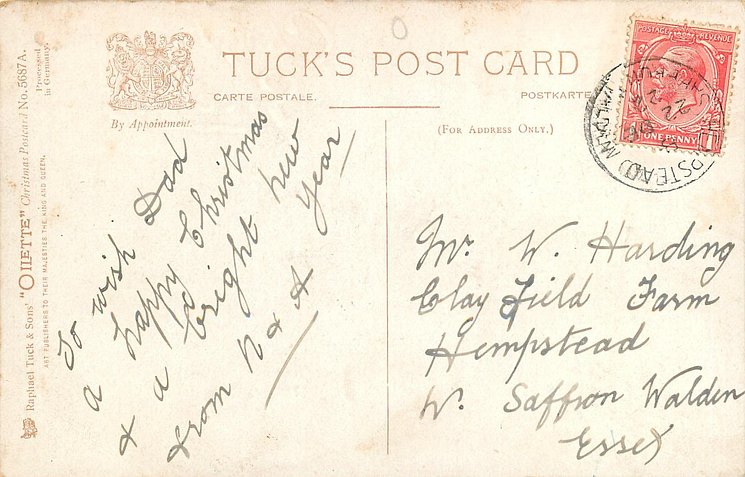 TUCK'S POST CARD
CARTE POSTALE.
POSTKARTE
By Appointment.
(FOR ADDRESS ONLY.)
Raphael Tuck & Sons' "OILETTE" Christmas Postcard No. 5687A.
ART PUBLISHERS TO THEIR MAJESTIES THE KING AND QUEEN.
Processed
in Germany.
POSTAGE REVENUE
ONE PENNY
To wish Dad
a happy Christmas
& a bright new
year
from N & A
Mr. W. Harding
Clay field Farm
Hempstead
Nr. Saffron Walden
Essex